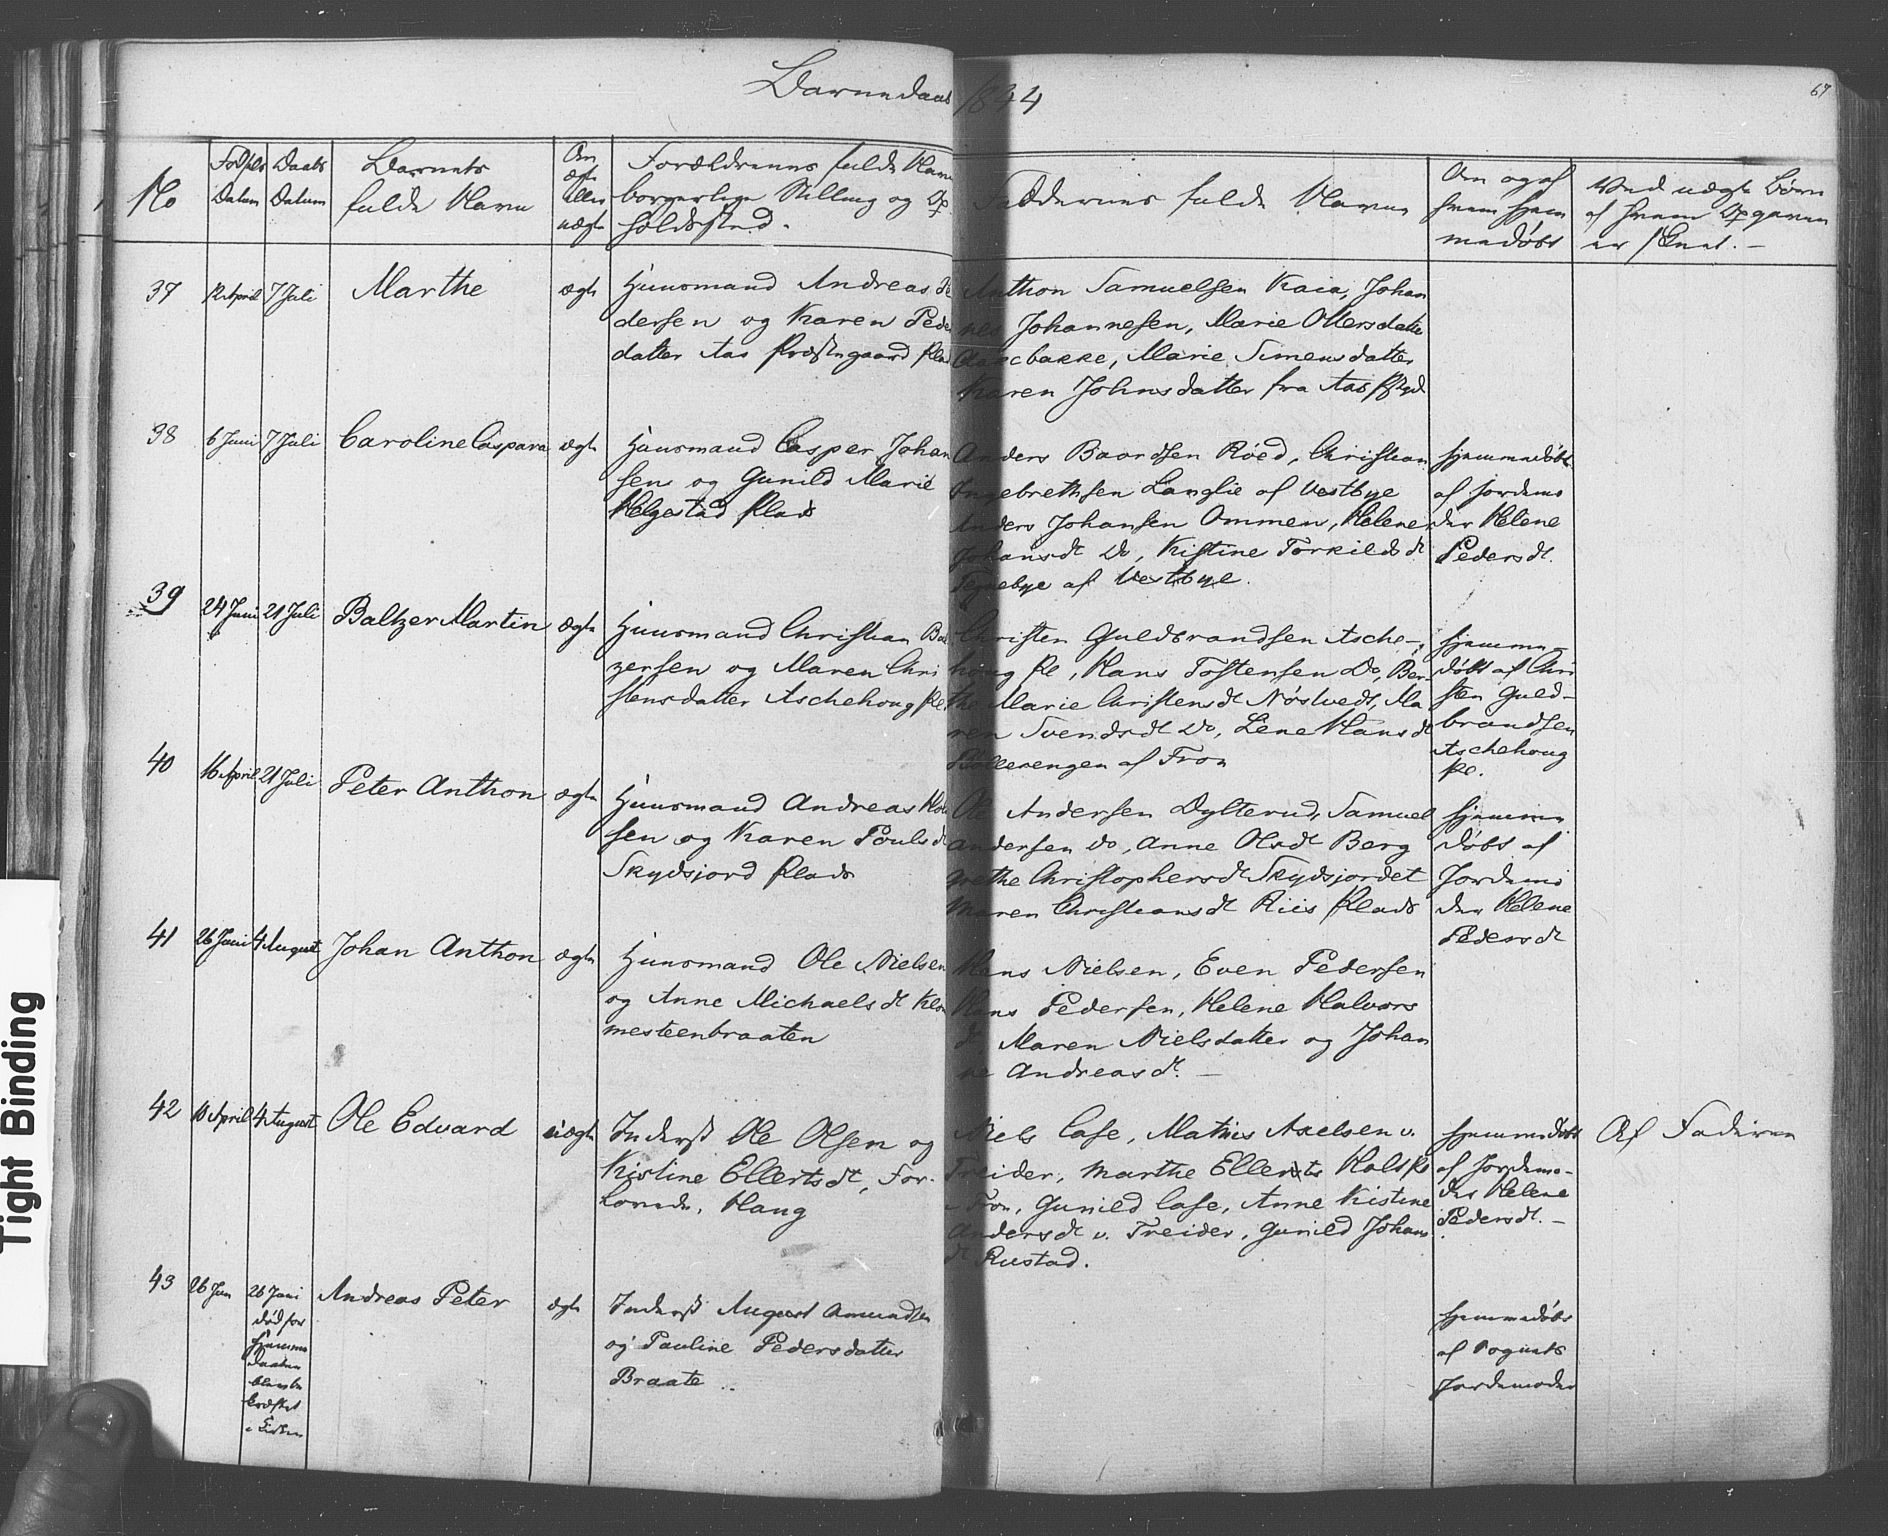 Barnedaab 1844
67
No
Fødsels Datum
Daabs Datum
Barnets fulde Navn
Om ægte eller uægte
Forældrenes fulde Navn
borgerlige Stilling og Op
holdssted.
Faddernes fulde Navne
Om og af
hvem hjem
medøbt
Ved uægte Børn
af hvem Opgaven
er skeet. –
37
12 April
7 Juli
Marthe
ægte
Huusmand Andreas Pe
dersen og Karen Peders
datter Aas Præstegaard Plads
Anthon Samuelsen Kaia, Johan
nes Johannesen, Marie Ottersdatter
Marie Simensdatter
Karen Johnsdatter fra Aas
38
6 Juni
7 Juli
Caroline Caspara
ægte
Huusmand Casper Johan
sen og Gunild Marie
Helgestad Plads
Anders Baardsen Röed, Christian
Ingebrethsen Langlie af Vestbye
Anders Johansen Ommen, Helene
Johansdt Do, Kistine Torkildsdt
Tegnebye af Vestbye.
hjemmedøbt
af Jordemo
der Helene
Pedersdt.
39
24 Juni
21 Juli
Baltzer Martin
ægte
Huusmand Christian Bal
zersen og Maren Chri
stensdatter Aschehoug Pl.
Christen Guldbrandsen Asche-
houg Pl, Hans Tostensen Do, Ber-
the Marie Christensdt Nöstvedt, Ma
ren Svendsdt Do, Lene Hansdt
Bøllerengen af Fron
hjemme-
døbt af Chri
sten Guld-
brandsen
Aschehoug
Pl.
40
16 April
21 Juli
Peter Anthon
ægte
Huusmand Andreas
sen og Karen Poulsdt
Skydsjord Plads
Ole Andersen Dylterud, Samuel
Andersen Do, Anne Olsdt Berg
Grethe Christophersdt Skydsjordet
Maren Christiansdt Riis Plads
hjemme
døbt af
Jordemo
der Helene
Pedersdt
41
26 Juni
4 August
Johan Anthon
ægte
Huusmand Ole Nielsen
og Anne Michaelsdt Klom
mesteenbraaten
Hans Nielsen, Even Pedersen
Hans Pedersen, Helene Halvors
dt Maren Nielsdatter og Johan
ne Andreasdt. –
42
10 April
4 August
Ole Edvard
uægte
Inderst Ole Olsen og
Kistine Ellertsdt, For-
lovede, Haug
Niels Case, Mathis Axelsen v.
Treider, Marthe Ellerts Hals Pl
i Fron, Gunild Case, Anne Kistine
Andersdt v. Treider, Gunild Johans
dt Rustad.
hjemmedøbt
af Jordemo-
der Helene
Pedersdt. –
Af Faderen
43
26 Jun
26 Juni
død før
hjemme
daaben
blev be
kræftet
i Kirken
Andreas Peter
ægte
Inderst August Amundsen
og Pauline Pedersdatter
Braate
hjemmedøbt
af Sognets
Jordemoder
Tight Binding